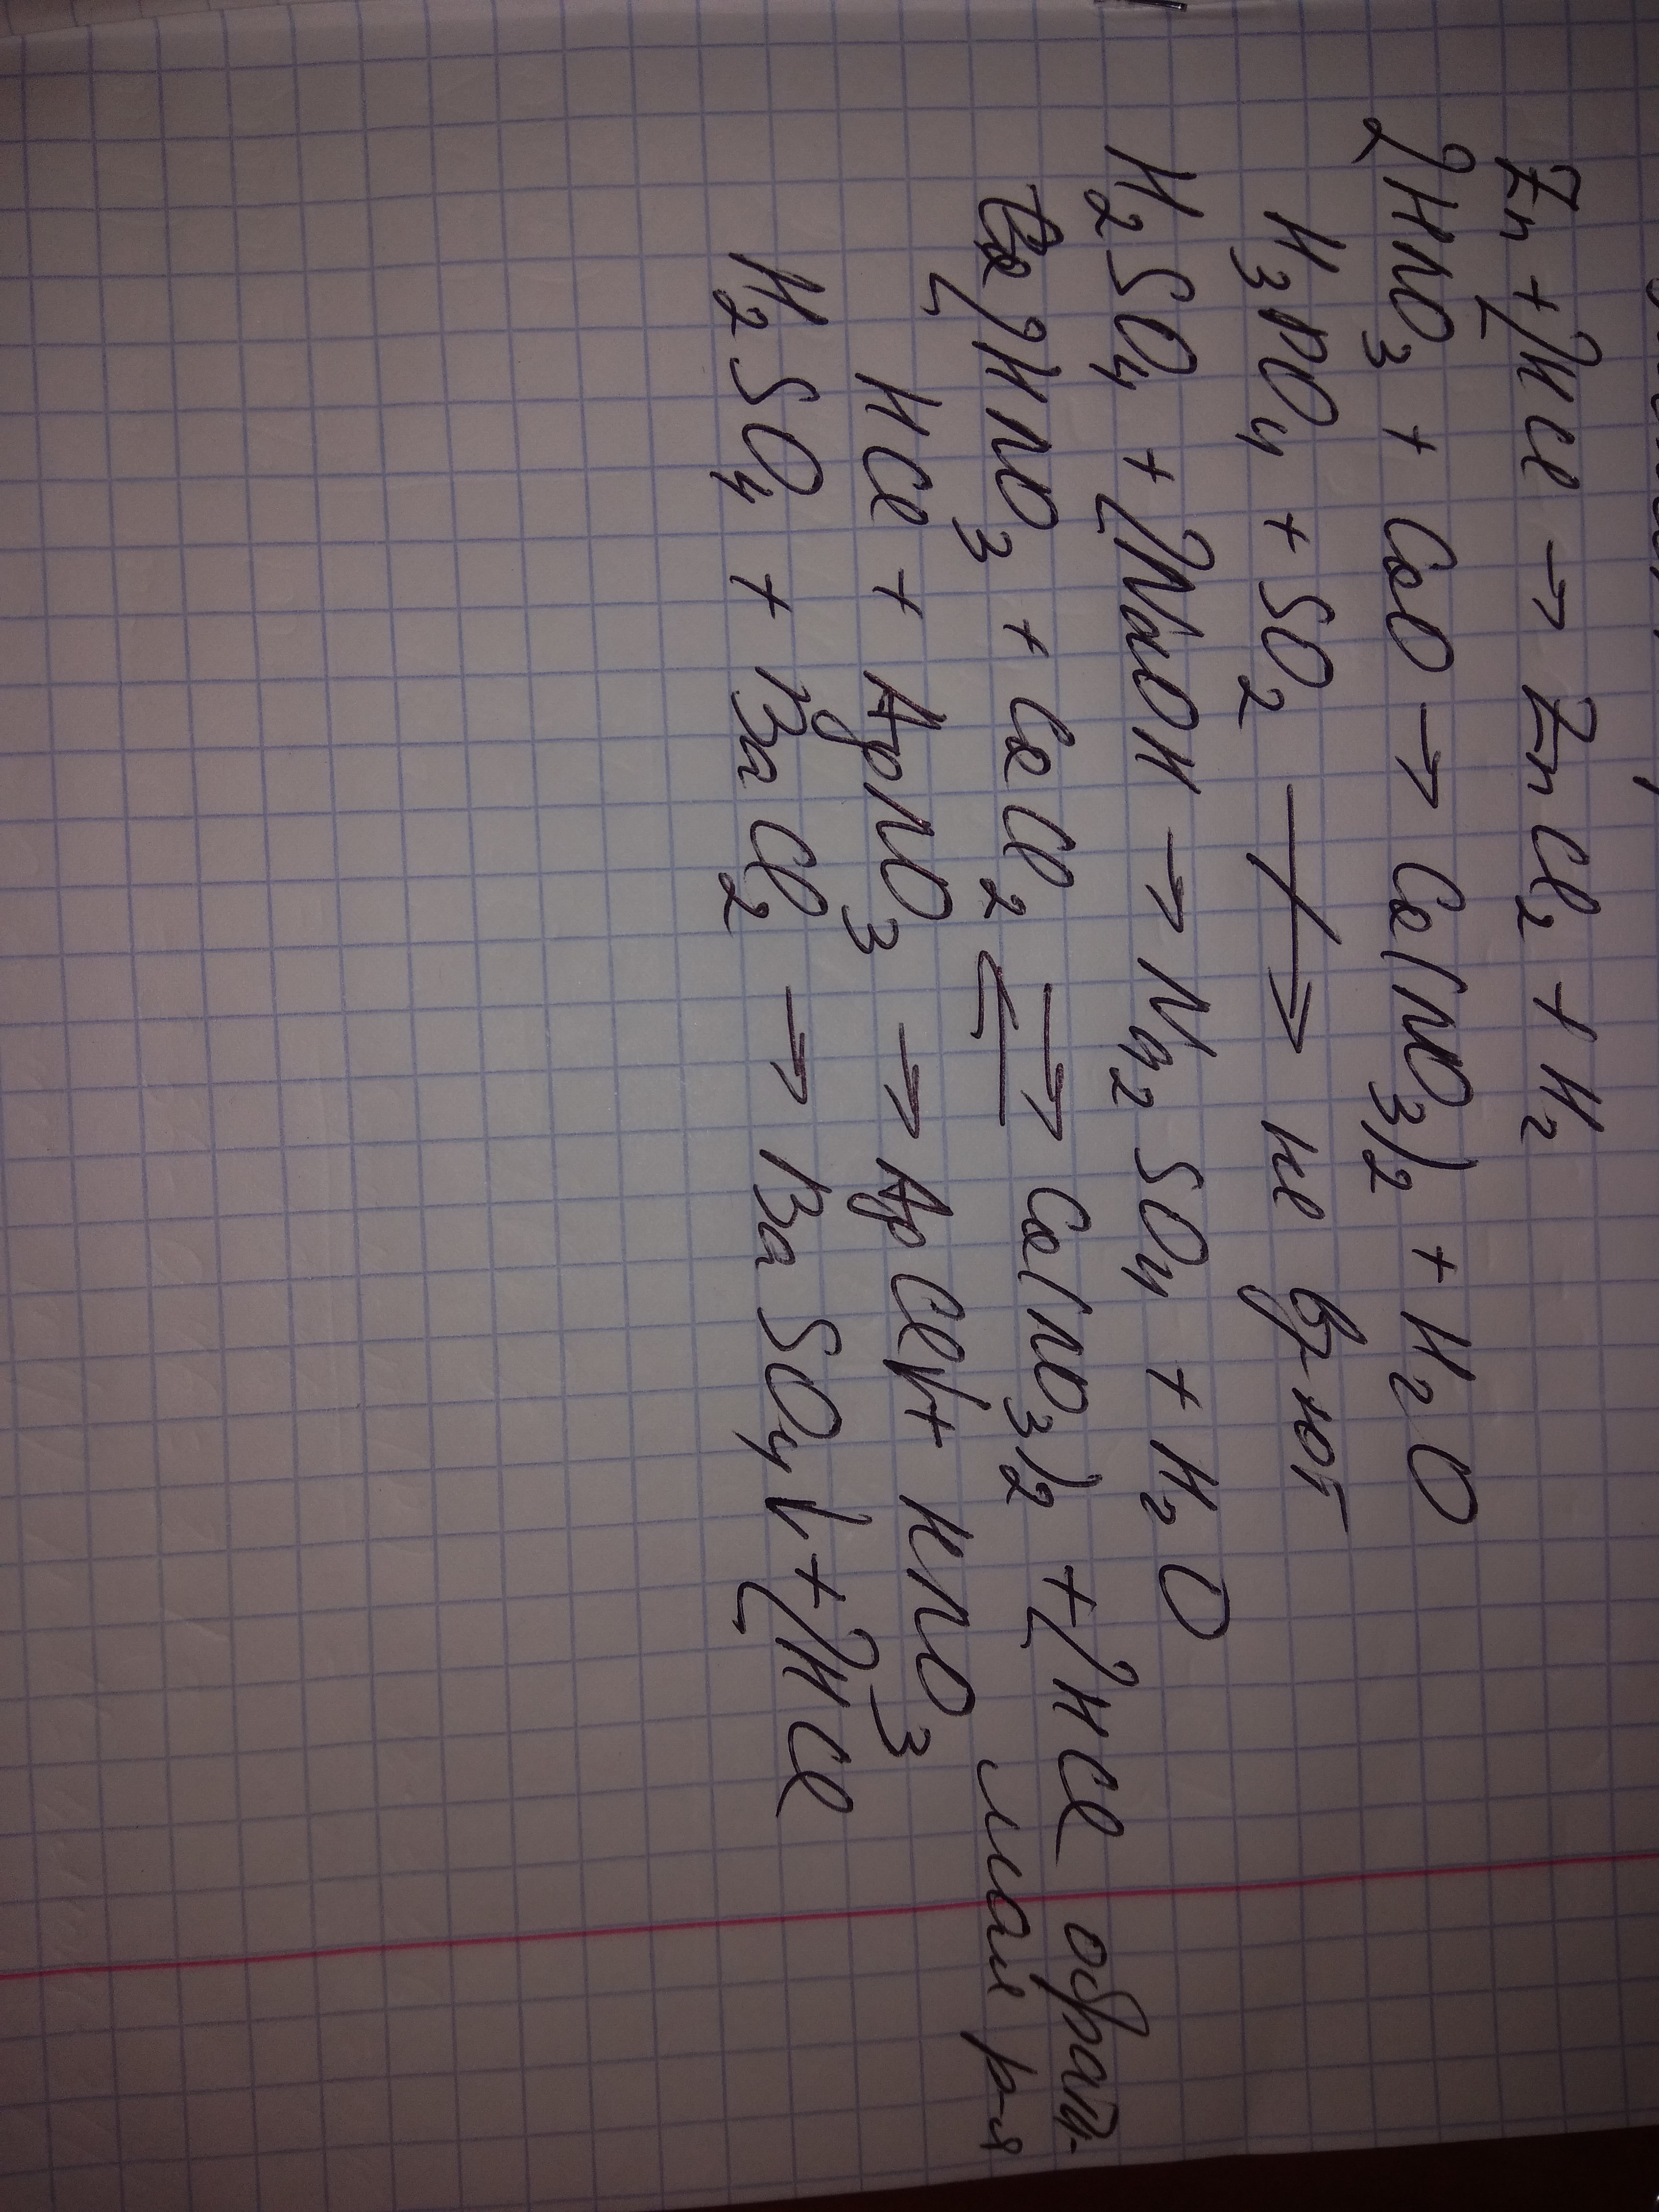 Zn + 2HCl → ZnCl₂ + H₂
2HNO₃ + CaO → Ca(NO₃)₂ + H₂O
H₃PO₄ + SO₂ ↛ не вз-ют
H₂SO₄ + 2NaOH → Na₂SO₄ + H₂O
2HNO₃ + CaCl₂ ⇄ Ca(NO₃)₂ + 2HCl обрати-
мая р-я
HCl + AgNO₃ → AgCl↓ + HNO₃
H₂SO₄ + BaCl₂ → BaSO₄↓ + 2HCl